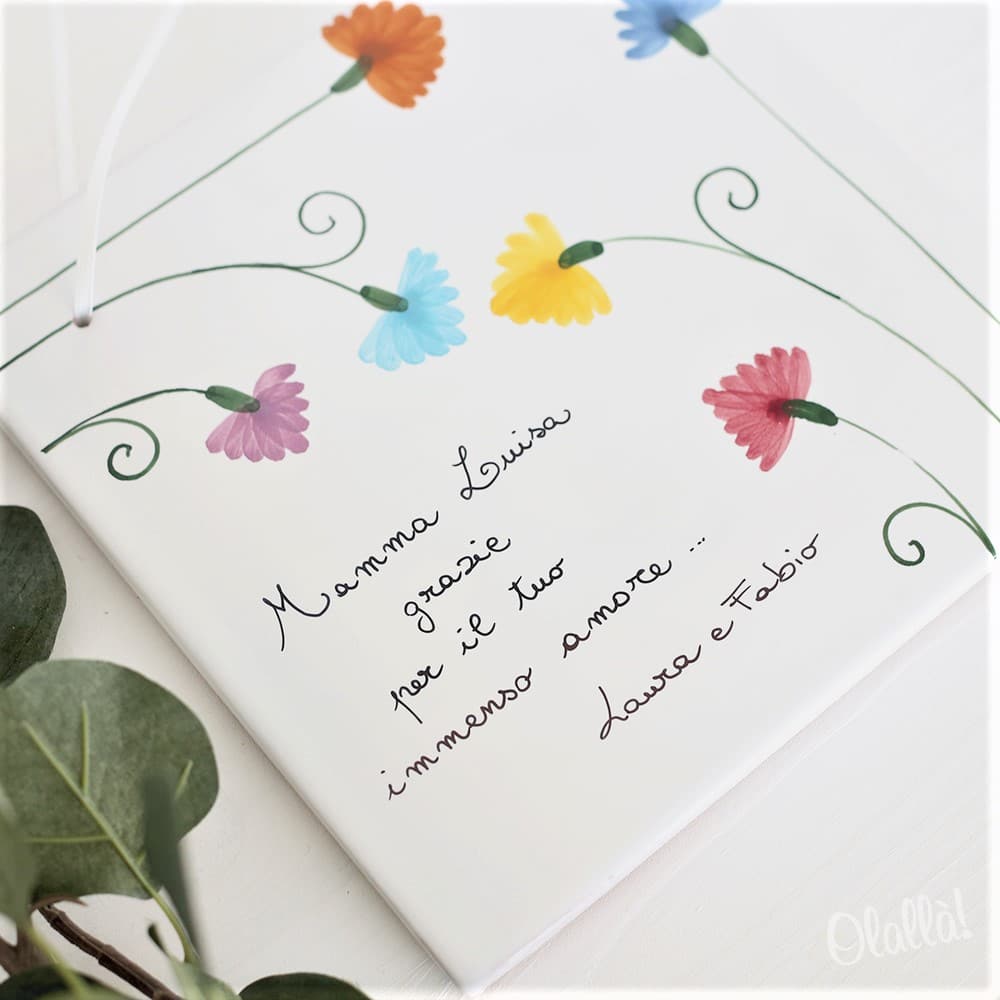 Mamma Luisa
grazie
per il tuo
immenso amore ...
Laura e Fabio
Olallà!